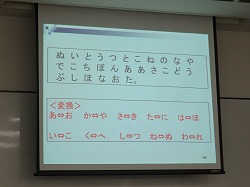 ぬ い と う つ と こ ね の な や
で こ ち ぼ ん あ あ さ こ ど う
ぶ し ほ な お た。
＜変換＞
あ⇔お か⇔や さ⇔き た⇔に は⇔ほ
い⇔こ く⇔へ し⇔つ ね⇔ぬ わ⇔れ